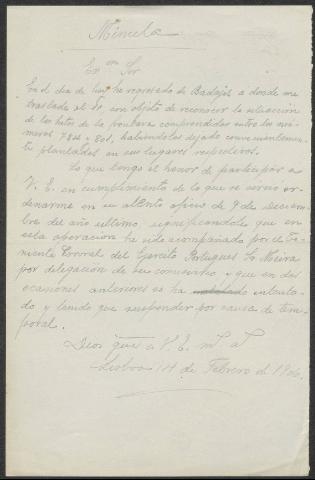 Minuta
Exmo Sor
En el dia de hoy he regresado de Badajoz a donde me
trasladé el 10, con objeto de reconocer la situacion
de los hitos de la frontera comprendidos entre los nú-
meros 784 y 801, habiéndolos dejado convenientemen-
te plantados en sus lugares respectivos.
Lo que tengo el honor de participar a
V. E. en cumplimiento de lo que se sirvió or-
denarme en su atento oficio de 9 de Diciem-
bre del año ultimo, significandole que en
esta operación he sido acompañado por el Te-
niente Coronel del Ejercito Portugues Sr Meira
por delegacion de su comisario y que en dos
ocasiones anteriores se ha intenta-
do y tenido que suspender por causa de tem-
poral.
Dios gue a V. E. m. a.
Lisboa 14 de Febrero de 1906.